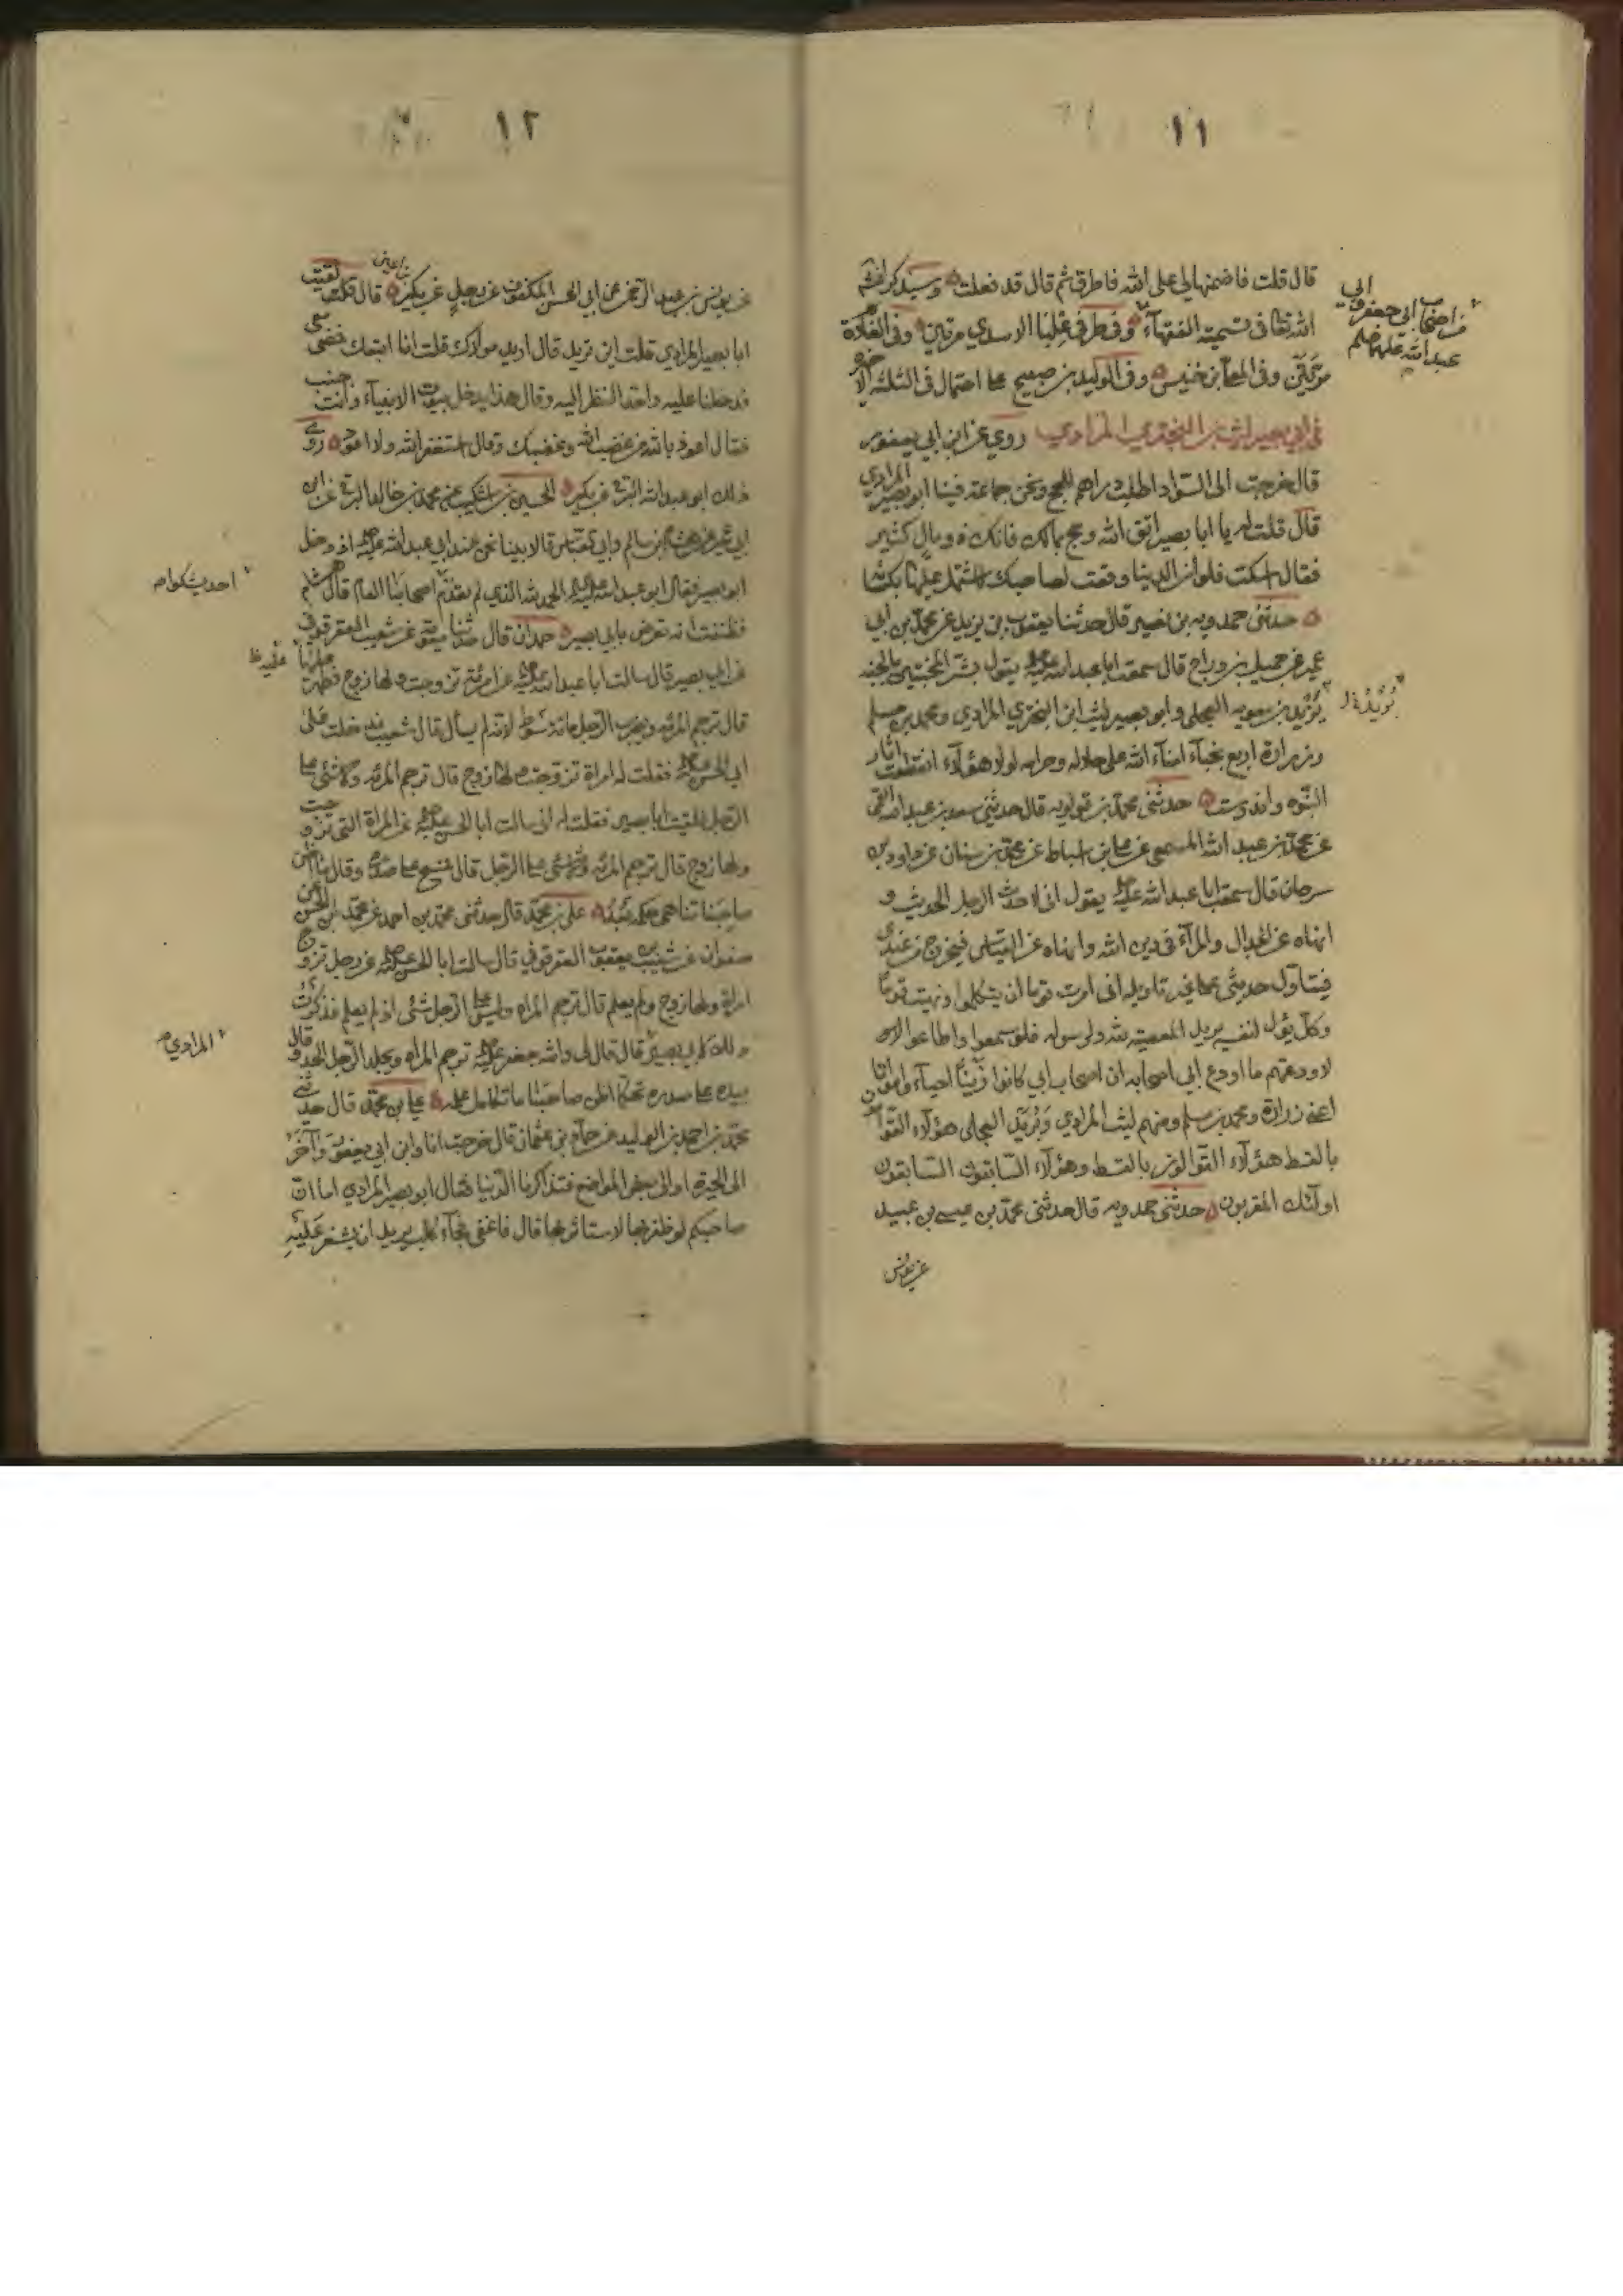 ١١
قال قلت فاضمنها لي على الله فاطرق ثم قال قد فعلت وسيذكر انشا
الله تعا فى تسمية الفقهآء وفى طرفى علبا الاسدي مرتين وفى
مرتين وفى المعلى بن خنيس وفى الوليد بن صبيح على احتمال فى الثلثة
فى ابي بصير ليث بن البختري المرادي روي عن ابن ابي يعفور
قال خرجت الى السواد اطلب دراهم للحج ونحن جماعة فينا ابو بصير المرادي
قال قلت له يا ابا بصير اتق الله وحج بمالك فانك ذو مال كثير
فقال اسكت فلو ان الدنيا وقعت لصاحبك لاشتمل عليها بكسائه
حدثنى حمدويه بن نصير قال حدثنا يعقوب بن يزيد عن محمد بن ابي
عمير عن جميل بن دراج قال سمعت ابا عبد الله عليه يقول بشر المخبتين بالجنة
بريد بن معويه العجلى وابو بصير ليث ابن البختري المرادي ومحمد بن مسلم
وزرارة اربع نجبآء امنآء الله على حلاله وحرامه لولا هؤلآء انقطعت اثار
النبوة واندرست حدثنى محمد بن قولويه قال حدثنى سعد بن عبد الله القمى
عن محمد بن عبد الله المسمعى عن على ابن اسباط عن محمد بن سنان عن داود بن
سرحان قال سمعت ابا عبد الله عليه يقول انى لاحدث الرجل الحديث و
انهاه عن الجدال والمرآء فى دين الله وانهاه عن القياس فيخرج من عندى
فيتاول حديثى على غير تاويله انى امرت قوما ان يتكلموا ونهيت قوما
وكل يؤل لنفسه يريد المعصية لله ولرسوله فلو سمعوا واطاعوا
لاودعتهم ما اودع ابي اصحابه ان اصحاب ابي كانوا زينا احيآء وامواتا
اعنى زرارة ومحمد بن مسلم ومنهم ليث المرادي وبريد العجلى هؤلآء القوامون
بالقسط هؤلآء القوالون بالقسط وهؤلآء السابقون السابقون
اولئك المقربون حدثنى حمدويه قال حدثنى محمد بن عيسى بن عبيد
عن يونس
ابي
من اصحاب ابي جعفر و
عبد الله عليهما
١٢
عن يونس بن عبد الرحمن عن ابي الحسن المكفوف عن رجل عن بكير قال لقيت
بن اعين
ابا بصير المرادي قلت اين تريد قال اريد مولاك قلت انا اتبعك فمضى معى
فدخلنا عليه واحد النظر اليه وقال هذا يدخل بيوت الانبيآء وانت جنب
فقال اعوذ بالله من غضب الله وغضبك وقال استغفر الله ولا اعود روى
ذلك ابو عبد الله البرقى عن بكير الحسين بن اشكيب عن محمد بن خالد البرقى عن ابن
ابي عمير عن هشام بن سالم وابي العباس قالا بينا نحن عند ابي عبد الله عليه اذ دخل
ابو بصير فقال ابو عبد الله عليه الحمد لله الذي لم يقدم اصحابنا العام قال هشام
فظننت انه تعرض بابي بصير حمدان قال حدثنا معوية عن شعيب العقرقوفى
عن ابي بصير قال سالت ابا عبد الله عليه عن امرءة تزوجت ولها زوج فظهر عليها
قال ترجم المرئة ويضرب الرجل مائة سوط لانه لم يسأل قال شعيب فدخلت على
ابي الحسن عليه فقلت له امراة تزوجت ولها زوج قال ترجم المرئه ولا شئى على
الرجل فلقيت ابا بصير فقلت له انى سالت ابا الحسن عليه عن المراة التى تزوجت
ولها زوج قال ترجم المرئه ولا شئى على الرجل قال فمسح على صدره وقال ما اظن
صاحبنا تناهى حكمه بعد على بن محمد قال حدثنى محمد بن احمد عن محمد ابن الحسن عن
صفوان عن شعيب بن يعقوب العقرقوفى قال سالت ابا الحسن عليه عن رجل تزوج
امراة ولها زوج ولم يعلم قال ترجم المراه وليس على الرجل شئى اذ لم يعلم فذكرت
ذلك لابي بصير قال قال لى والله جعفر عليه ترجم المراه ويجلد الرجل الحد وقال
بيده على صدره تحكها اظن صاحبنا ما تكامل علمه على بن محمد قال حدثنى
محمد بن احمد بن الوليد عن حماد بن عثمان قال خرجت انا وابن ابي يعفور وآخر
الى الحيرة او الى بعض المواضع فتذاكرنا الدنيا فقال ابو بصير المرادي اما ان
صاحبكم لو ظفر بها لاستاثر بها قال فاغفى فجآء كلب يريد ان يشغر عليه
المرادي